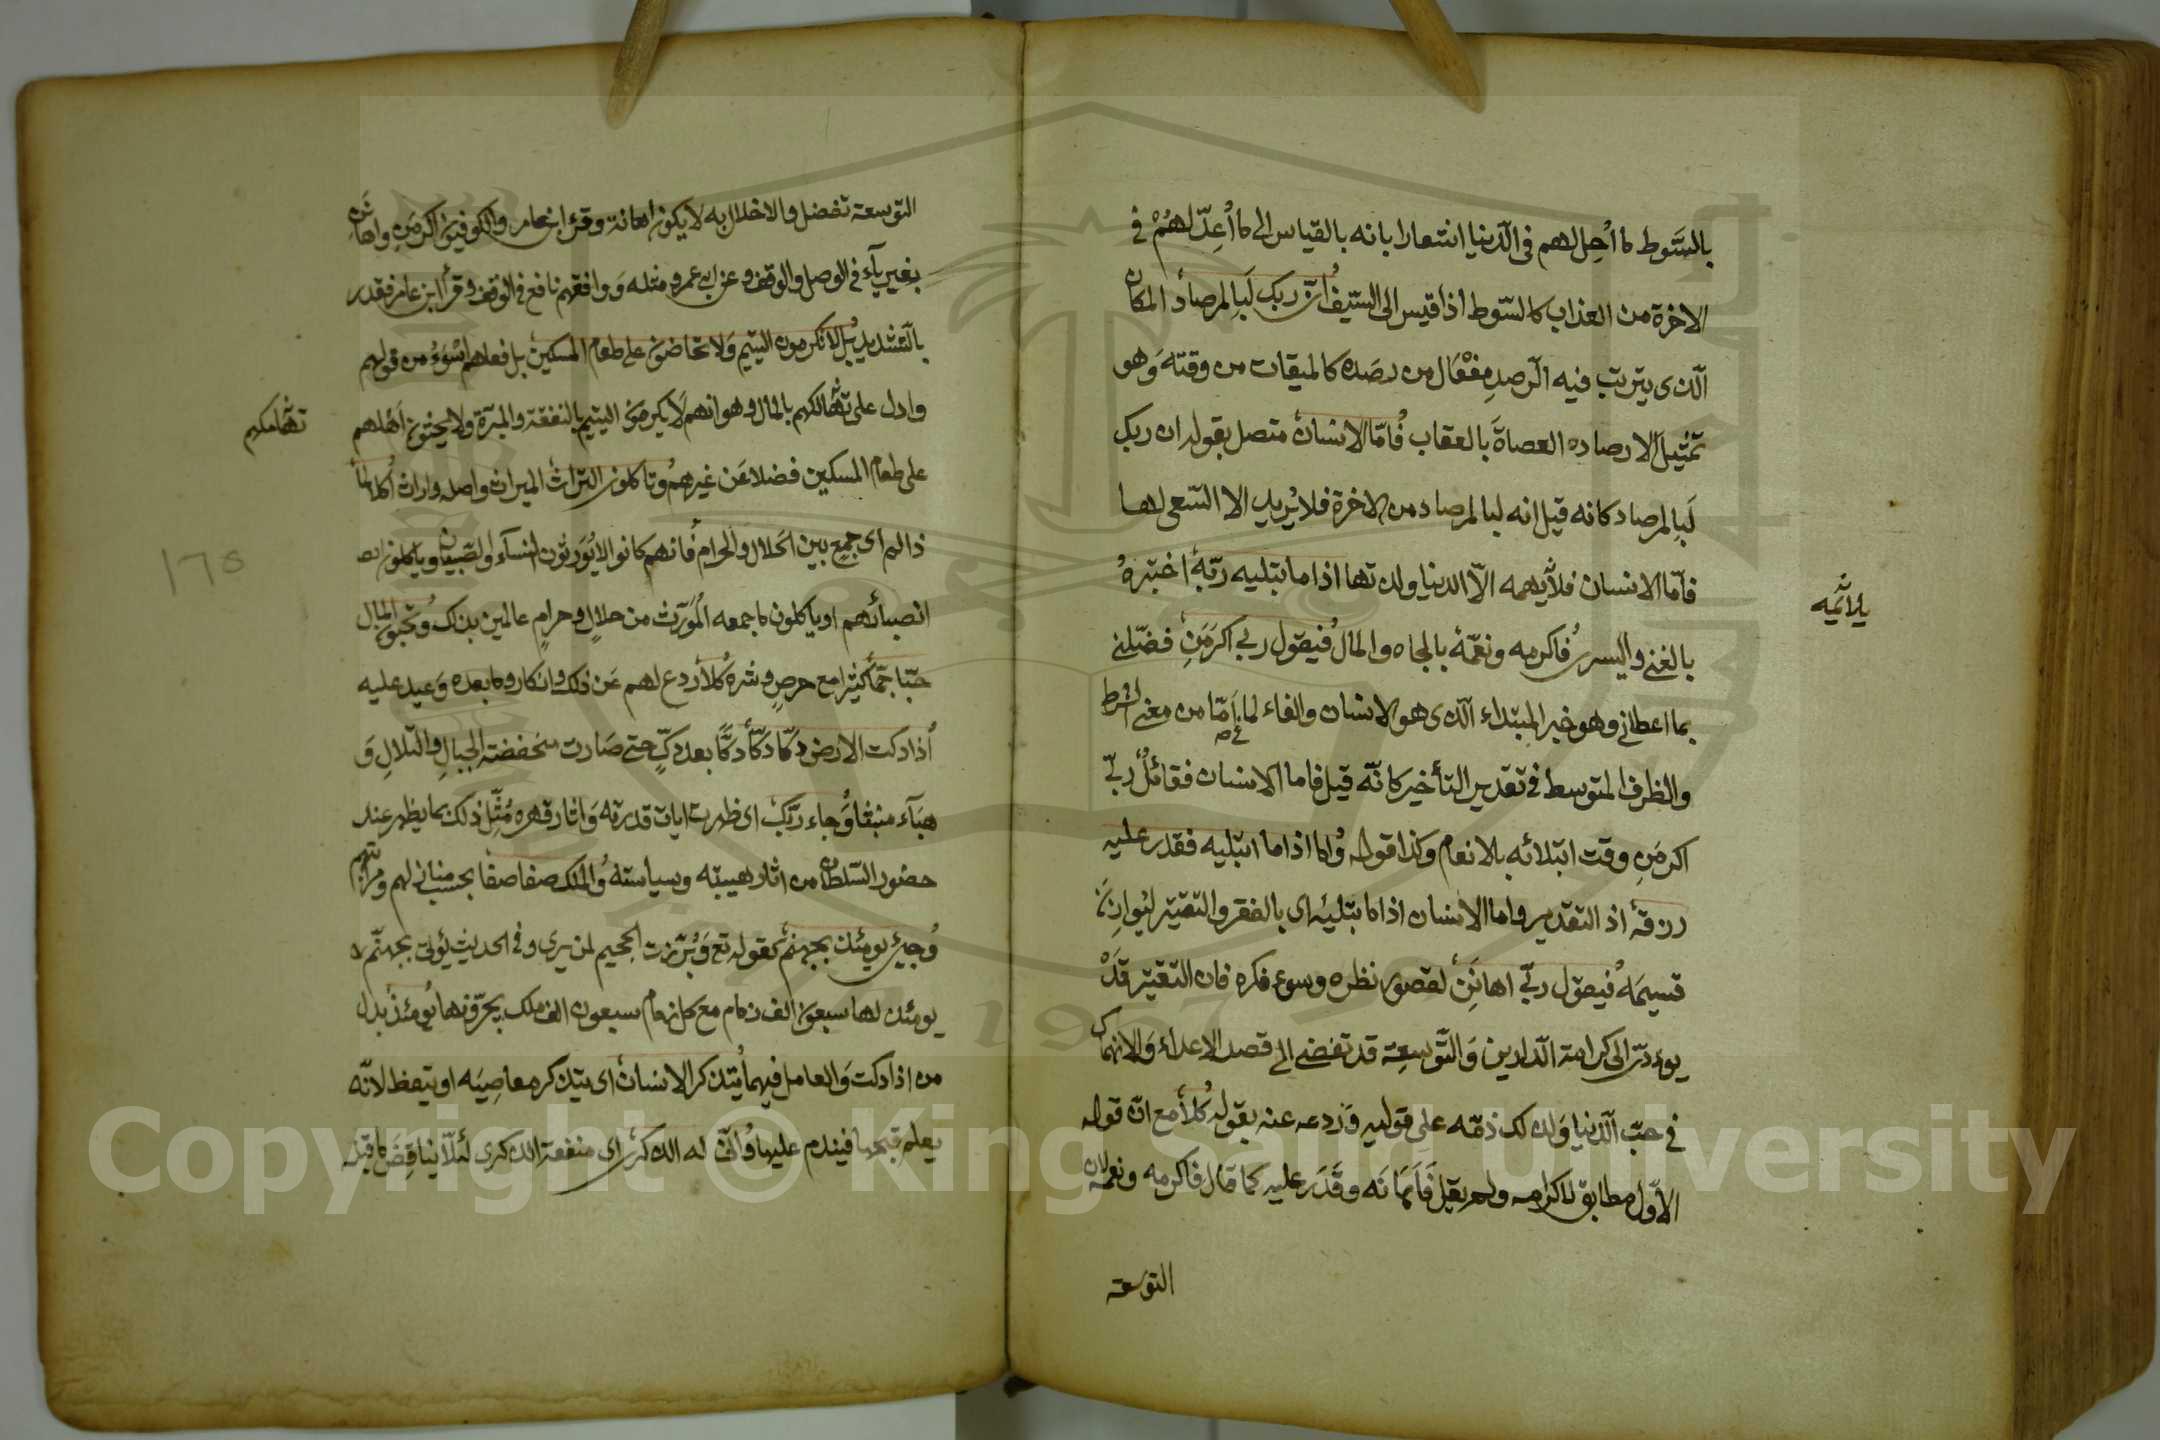 بالسَّوط ما أحل لهم فى الدنيا اشعارا بانه بالقياس الى ما أُعِدّ لهُمْ فى
الاخرة من العذاب كالسّوط اذا قيس الى السّيف انّ ربك لَبالمرصاد المكان
الذى يترتب فيه الرصد مِفْعَال من رصَده كالميقات من وقته وَهو
تمثيل لارصاده العصاةَ بالعقاب فامّا الانسان متصل بقوله ان ربك
لَبالمرصاد كانه قيل انه لبالمرصاد من الاخرة فلا يُريد الا السّعى لها
فامّا الانسان فلا يهمه الّا الدنيا ولذتها اذا ما ابتليه ربّهُ اختبرهُ
يلائمه
بالغنى واليسرى فاكرمه ونعّمهُ بالجاه والمال فيقول ربى اكرَمَنِ فضّلنى
بما اعطانى وهو خبر المبتداء الّذى هو الانسان والفاء لما فى اَمّا من معنى الشرط
والظرف المتوسط فى تقدير التأخير كانّه قيل فاما الانسان فقائلٌ ربّى
اكرمَنِ وقت ابتلائه بالانعام وكذا قوله وامّا اذا ما ابتليه فقدر عليه
رزقهُ اذ التقدير واما الانسان اذا ما ابتليه اى بالفقر والتقتير ليُوازِنَ
قسيمَهُ فيقول ربّى اهانَنِ لقصور نظره وسوء فكره فان التقتير قَدْ
يوءدّى الى كرامة الدّارين وَالتَّوسِعة قد تفضى الى قصد الاعداء وَالانهماك
فى حبّ الدّنيا وَلذلك ذمّه على قوليه وَردعه عنه بقوله كلا مع انّ قوله
الاوّل مطابق لاكرامه ولم يقل فَاَهَانَه وقَدَر عليه كما قال فاكرمه ونعمه لان
التوسعة
التوسعة تفضل والاخلال به لا يكون اهانة وقرا ابن عامر والكوفيون اكرمَنِ واهانَنِ
بغير ياء فى الوصل والوقف وعن ابى عمرو مثله وَوافقهم نافع فى الوقف وقرأ ابن عامر فقدر
بالتشديد بل لا تكرمون اليتيم وَلا تحاضون على طعام المسكين بل فعلهم اسْوَءُ من قولهم
وادل على تهالكهم بالمال وهو انهم لا يكرمون اليتيم بالنفقة والمبرّة ولا يحثون اَهلهم
تهالكهم
على طعام المسكين فضلا عَن غيرهم وَتاكلون التراث الميراث واصله وراث اكلا لمّا
ذا لم اى جمع بين الحَلال والحرام فانهم كانوا لا يُوَرِّثون النساَء والصّبيان وياكلون
١٦٥
انصبائهم او ياكلون ما جمعه المُوَرّث من حلالٍ وحرامٍ عالمين بذلك وتحبّون المال
حبّا جمّا كثيرا مع حرصٍ وشره كلا ردع لهم عَن ذلك وانكار وما بعده وَعيد عليه
اذا دكت الارض دكّا دكّا دكًّا بعد دكٍّ حتى صَارت منخفضة الجبالِ والتّلالِ وَ
هباَء منبثا وَجاء ربّك اى ظهرت ايات قدرته وَاثار قهره مُثّل ذلك بما يظهر عند
حضور السّلطان من اثار هيبته وسياسته وَالملك صفا صفا بحسب منازلهم ومراتبهم
وَجيئ يومئذ بجهنم كقوله تع وَبُرّزت الجحيم لمن يرى وفى الحديث يؤتى بجهنّم
يومئذ لها سبعون الف زمام مع كل زمام سبعون الف ملك يجرّونها يَومئذ بدل
من اذا دكت وَالعامل فيهما يتذكر الانسان اى يتذكر معاصيَه او يتعظ لانّه
يعلم قبحها فيندم عليها واَنّى له الذكرى اى منفعة الذكرى لئلّا يناقِضَ ما قبله
Copyright © King Saud University
1957